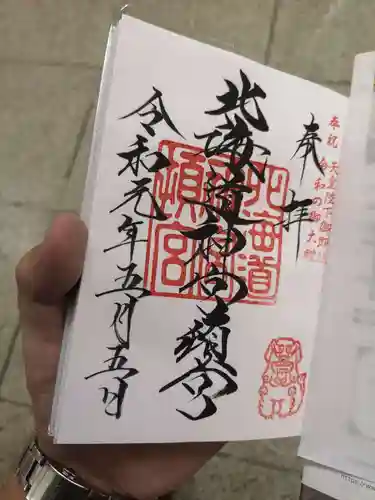 奉祝 天皇陛下御即位
令和の御大礼
奉拝
北海道神宮頓宮
北海道
頓宮
令和元年五月五日